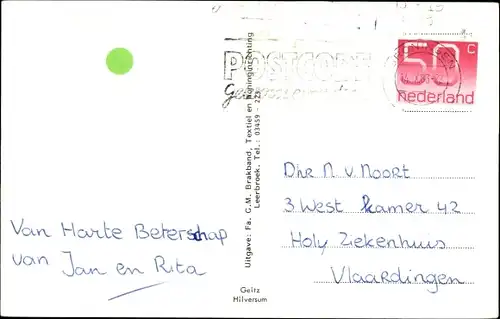 POSTCODE
50 c
nederland
Van Harte Beterschap
van Jan en Rita
Uitgave: Fa. G.M. Brakband, Textiel en Woninginrichting
Leerbroek. Tel.: 03459 - 223
Geitz
Hilversum
Dhr N. v. Noort
3 West kamer 42
Holy Ziekenhuis
Vlaardingen